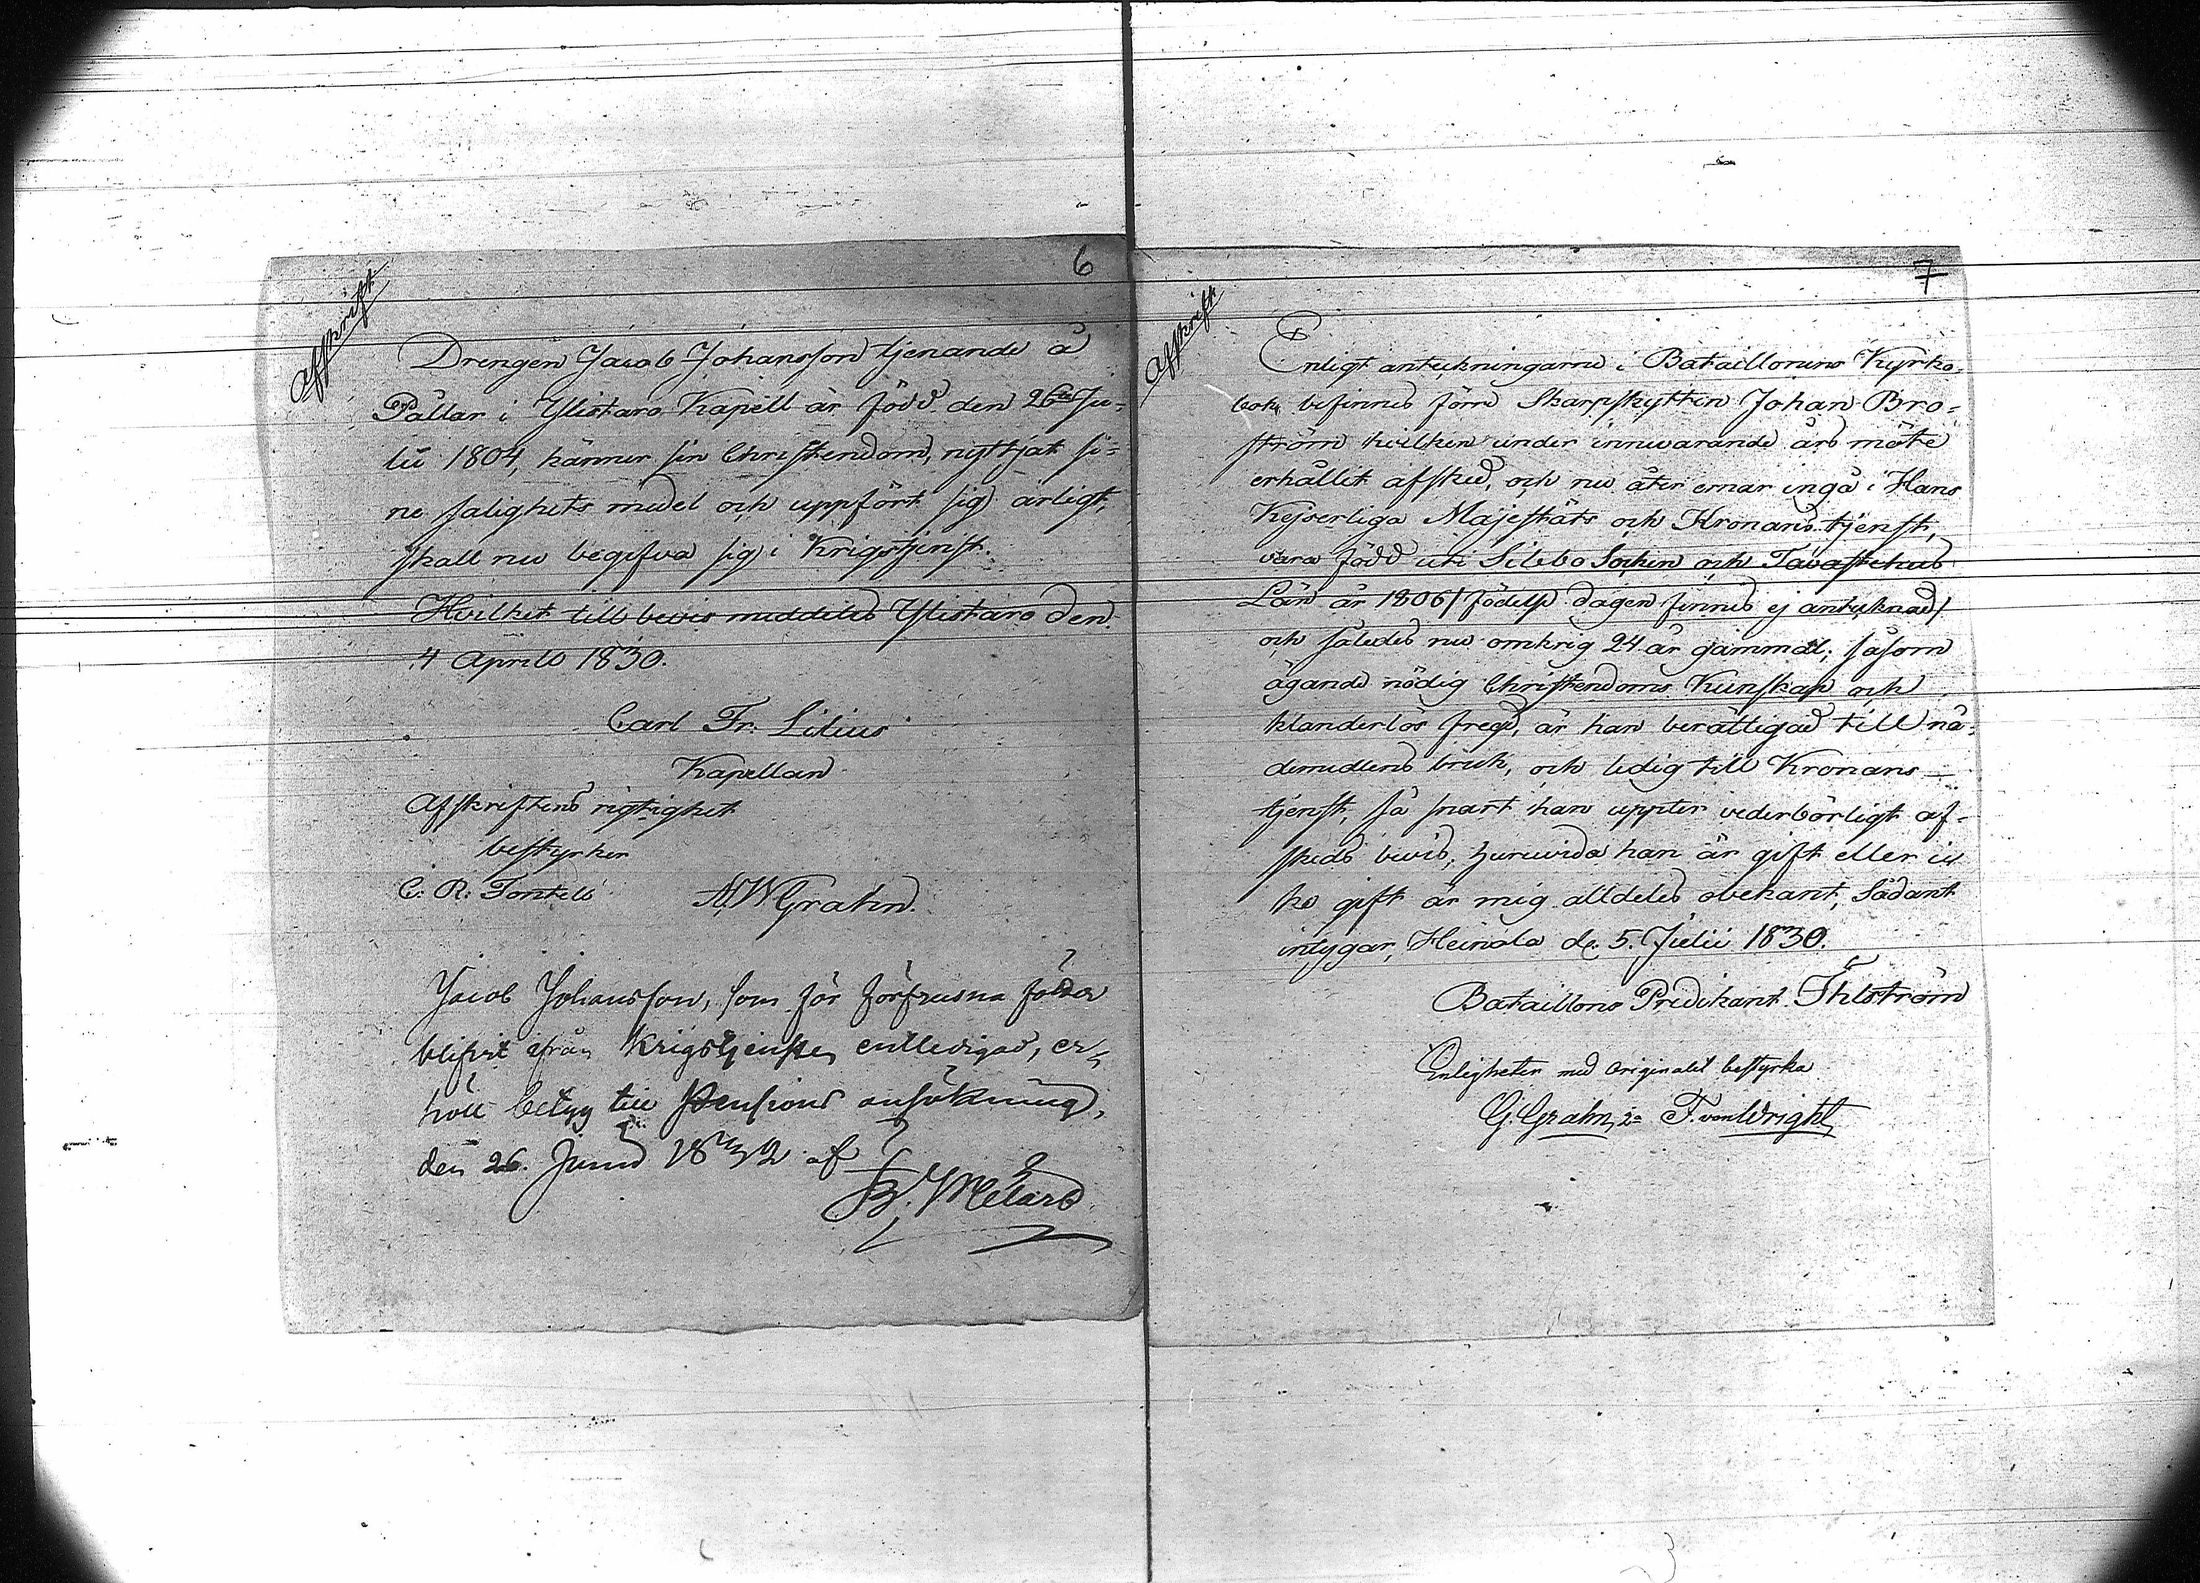 6
Afskrift
Drengen Jacob Johansson tjenande å
Pållar i Ylistaro Kapell är född den 26te Ju-
lii 1804, känner sin Christendom, nyttjat si-
ne salighets medel och uppfört sig ärligt,
skall nu begifva sig i Krigstjenst.
Hvilket till bevis meddeles Ylistaro den
4 Aprils 1830.
Carl Fr. Lilius
Kapellan
Afskriftens rigtighet
bestyrker
C. R. AWGrahn.
Jacob Johansson, som för förfrusna fötter
blifvit ifrån Krigstjensten entledigad, er-
höll betyg till Pensions ansökning,
den 26. Junii 1832 af
7
Afskrift
Enligt anteckningarne i Bataillonens Kyrko-
bok befinnes förre Skarpskytten Johan Bro-
ström hvilken under innevarande års möte
erhållit afsked, och nu åter ernar ingå i Hans
Kejserliga Majestäts och Kronans tjenst,
vara född uti Silbo Socken och Tavastehus
Län år 1806 / födelse dagen finnes ej antecknad /
och således nu omkrig 24 år gammal; såsom
ägande nödig Christendoms Kunskap och
klanderlös fregd, är han berättigad till nå-
demedlens bruk, och ledig till Kronans
tjenst, så snart han uppter vederbörligt af-
skeds bevis; huruvida han är gift eller ic
ke gift är mig alldeles obekant, Sådant
intygar, Heinola d. 5. Julii 1830.
Bataillons Predikant Ihlström
Enligheten med Originalet bestyrka
G. Grahn F. von Wright